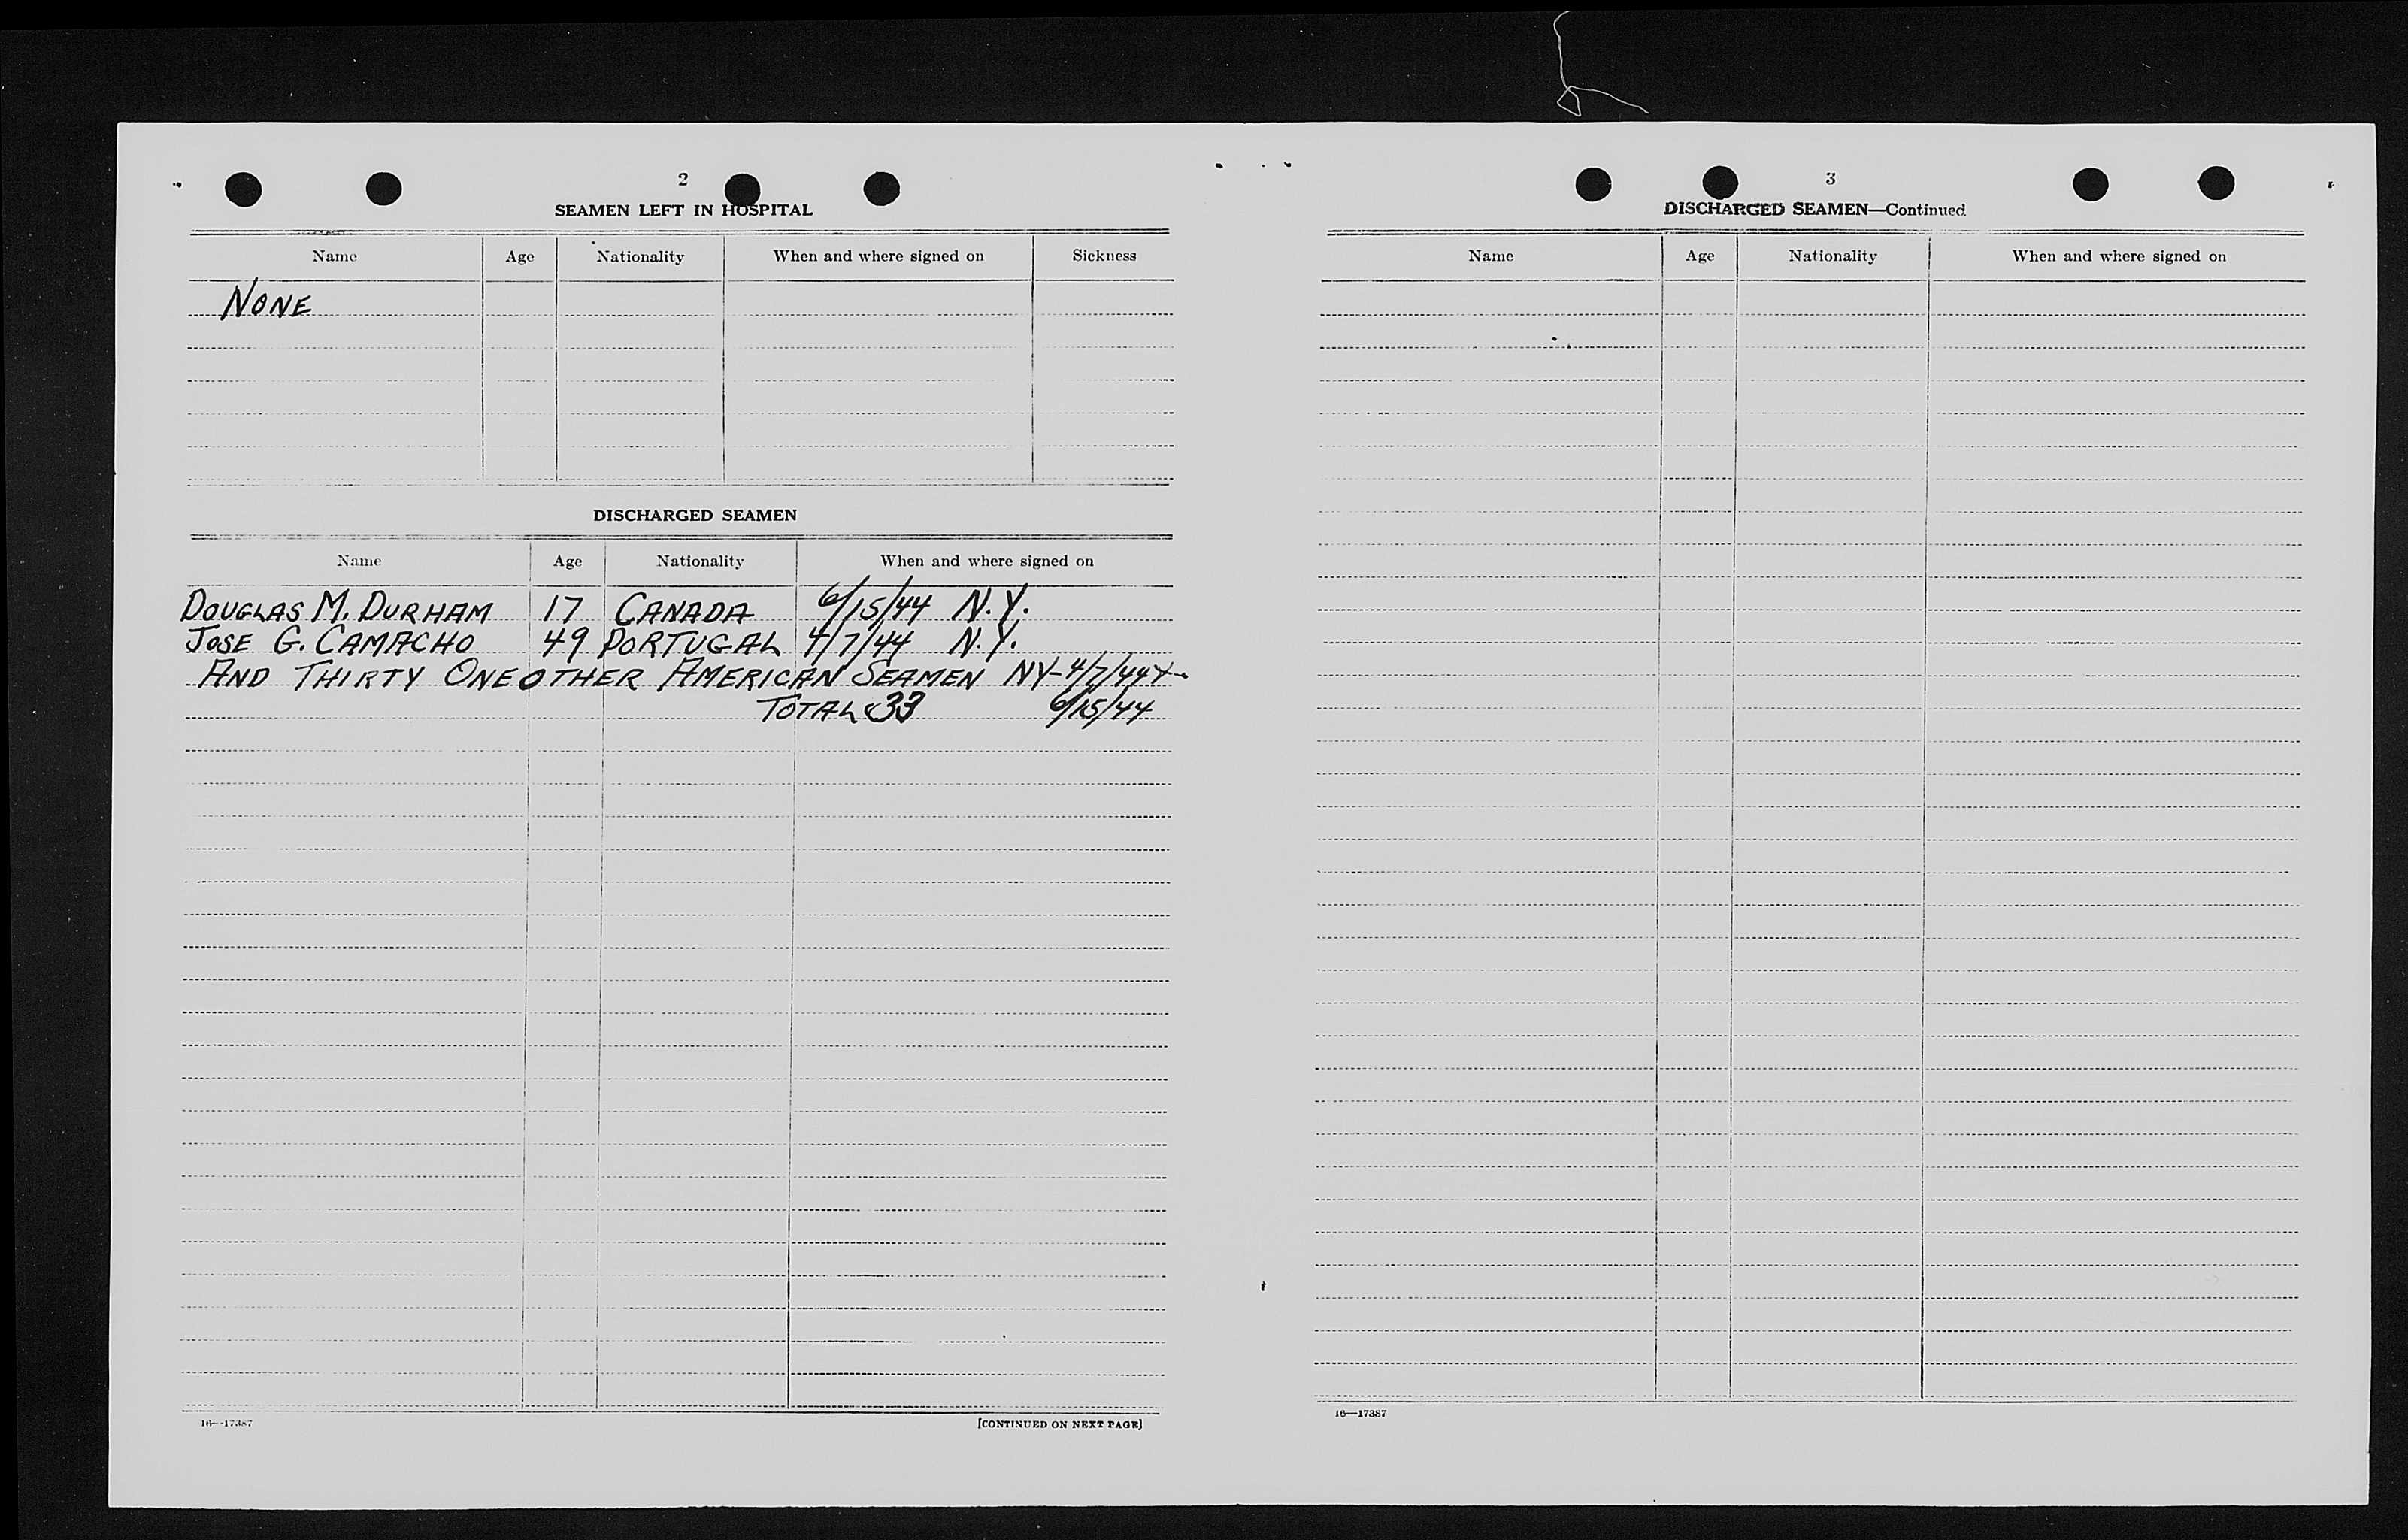 2
SEAMEN LEFT IN HOSPITAL
Name Age Nationality When and where signed on Sickness
NONE
DISCHARGED SEAMEN
Name Age Nationality When and where signed on
DOUGLAS M. DURHAM 17 CANADA 6/15/44 N.Y.
JOSE G. CAMACHO 49 PORTUGAL 4/7/44 N.Y.
AND THIRTY ONE OTHER AMERICAN SEAMEN NY-4/7/44 +
TOTAL 33 6/15/44
16—17387 [CONTINUED ON NEXT PAGE]
3
DISCHARGED SEAMEN—Continued
Name Age Nationality When and where signed on
16—17387